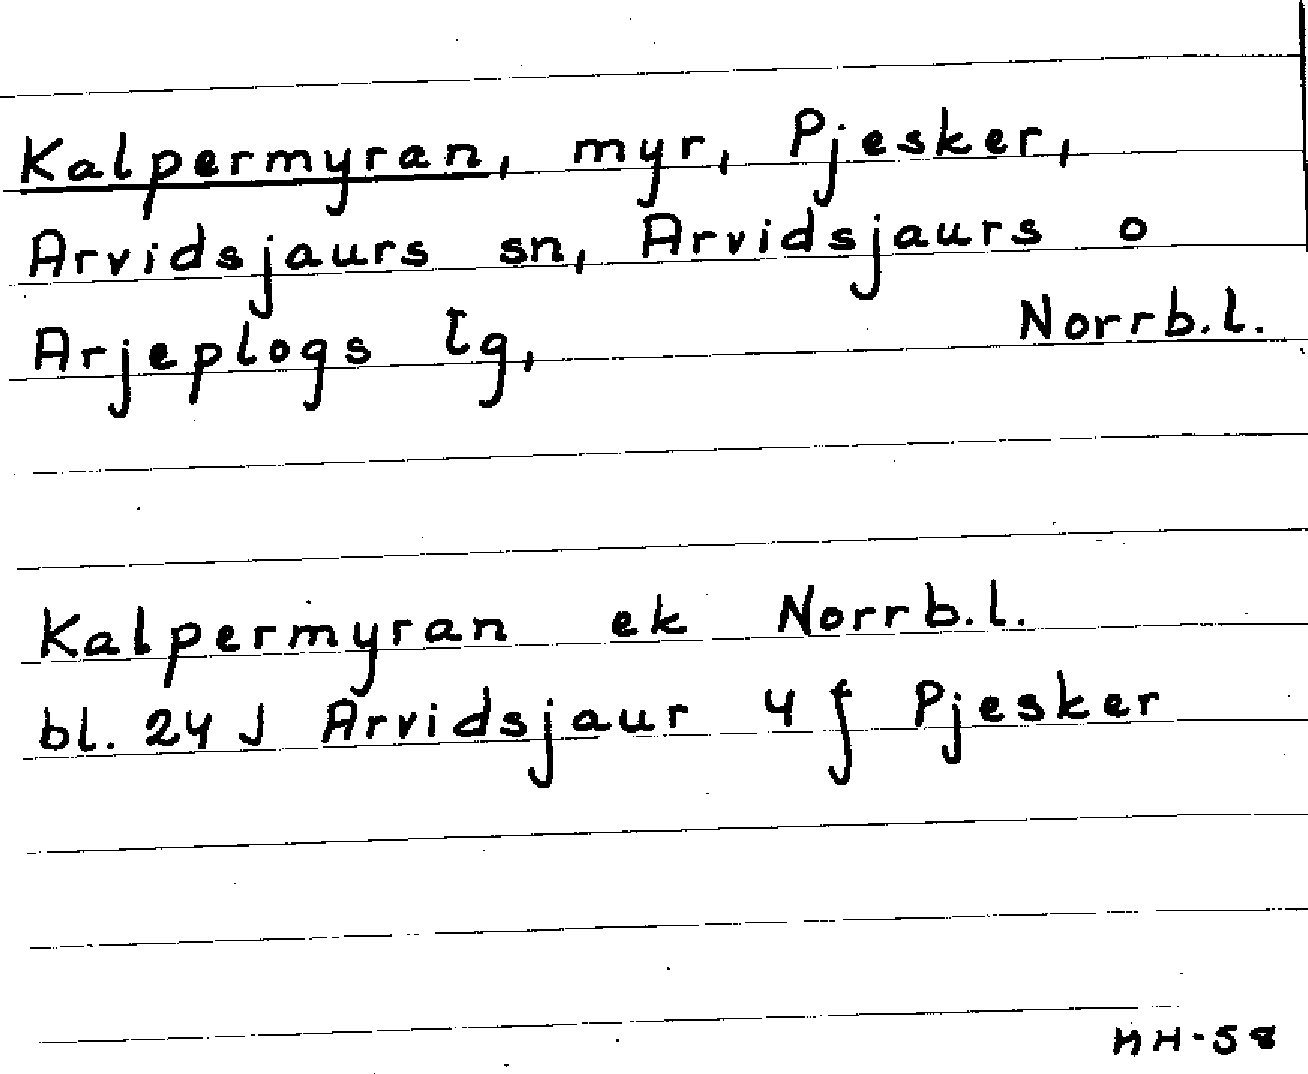 Kalpermyran, myr, Pjesker,
Arvidsjaurs sn, Arvidsjaurs o
Arjeplogs lg, Norrb.l.
Kalpermyran ek Norrb.l.
bl. 24 J Arvidsjaur 4 f Pjesker
HH-58